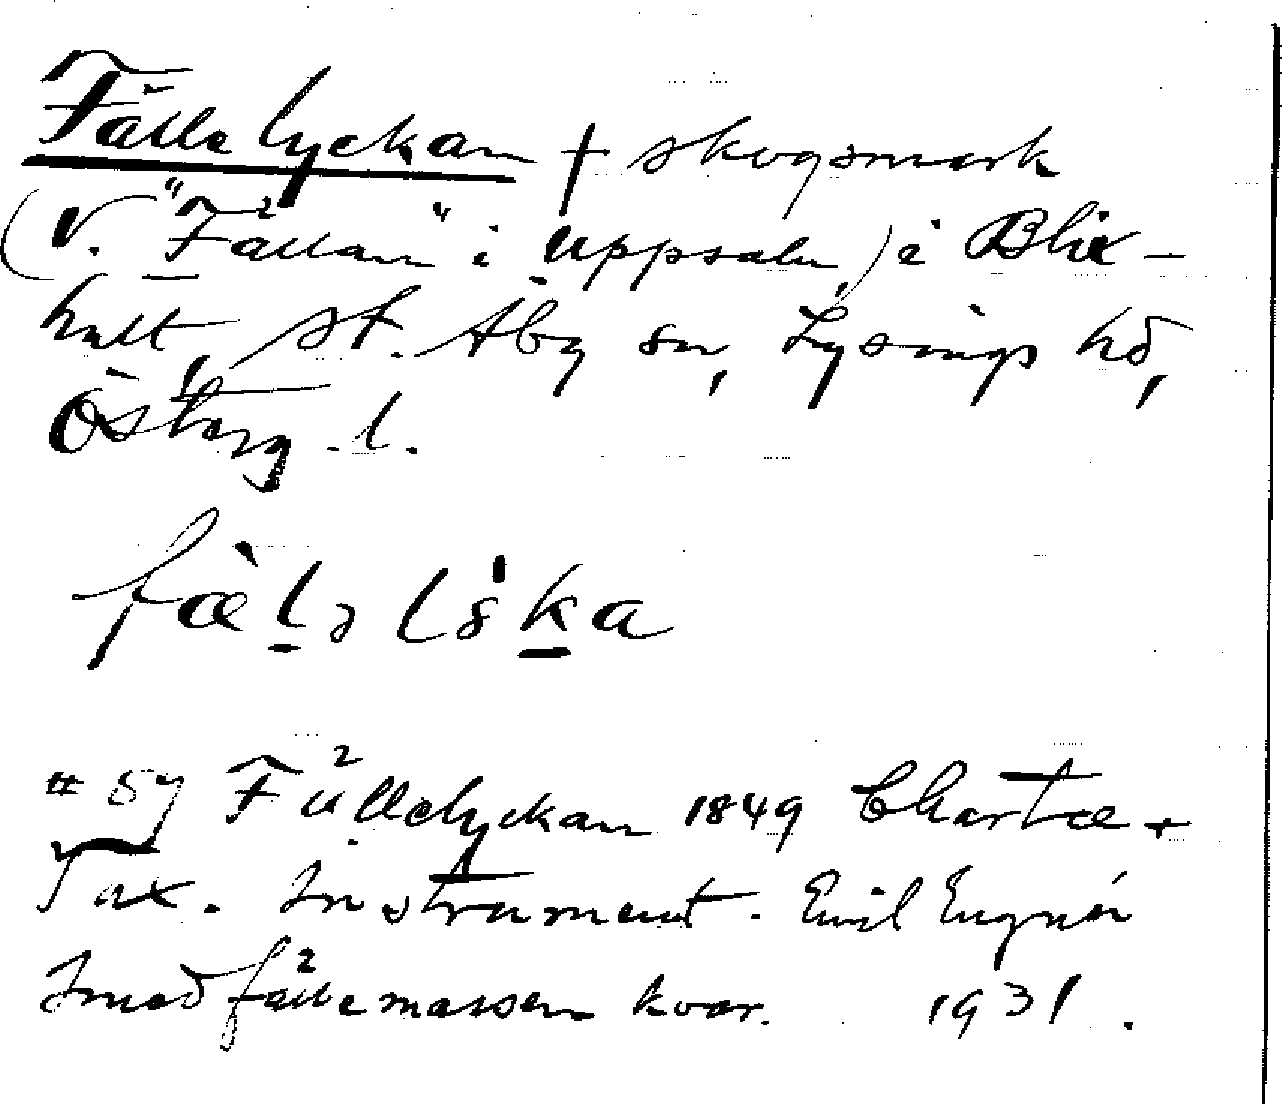 Fällelyckan † skogsmark
(V. "Fällan" i Uppsala,) å Blix-
hult, St. Åby sn, Lysings hd,
Österg. l.
fæ̀lə lỳka
# 59 Fällelyckan 1849 Chartæ +
Tax. Instrument. Emil Engnér
Smedfällemassen kvar. 1931.